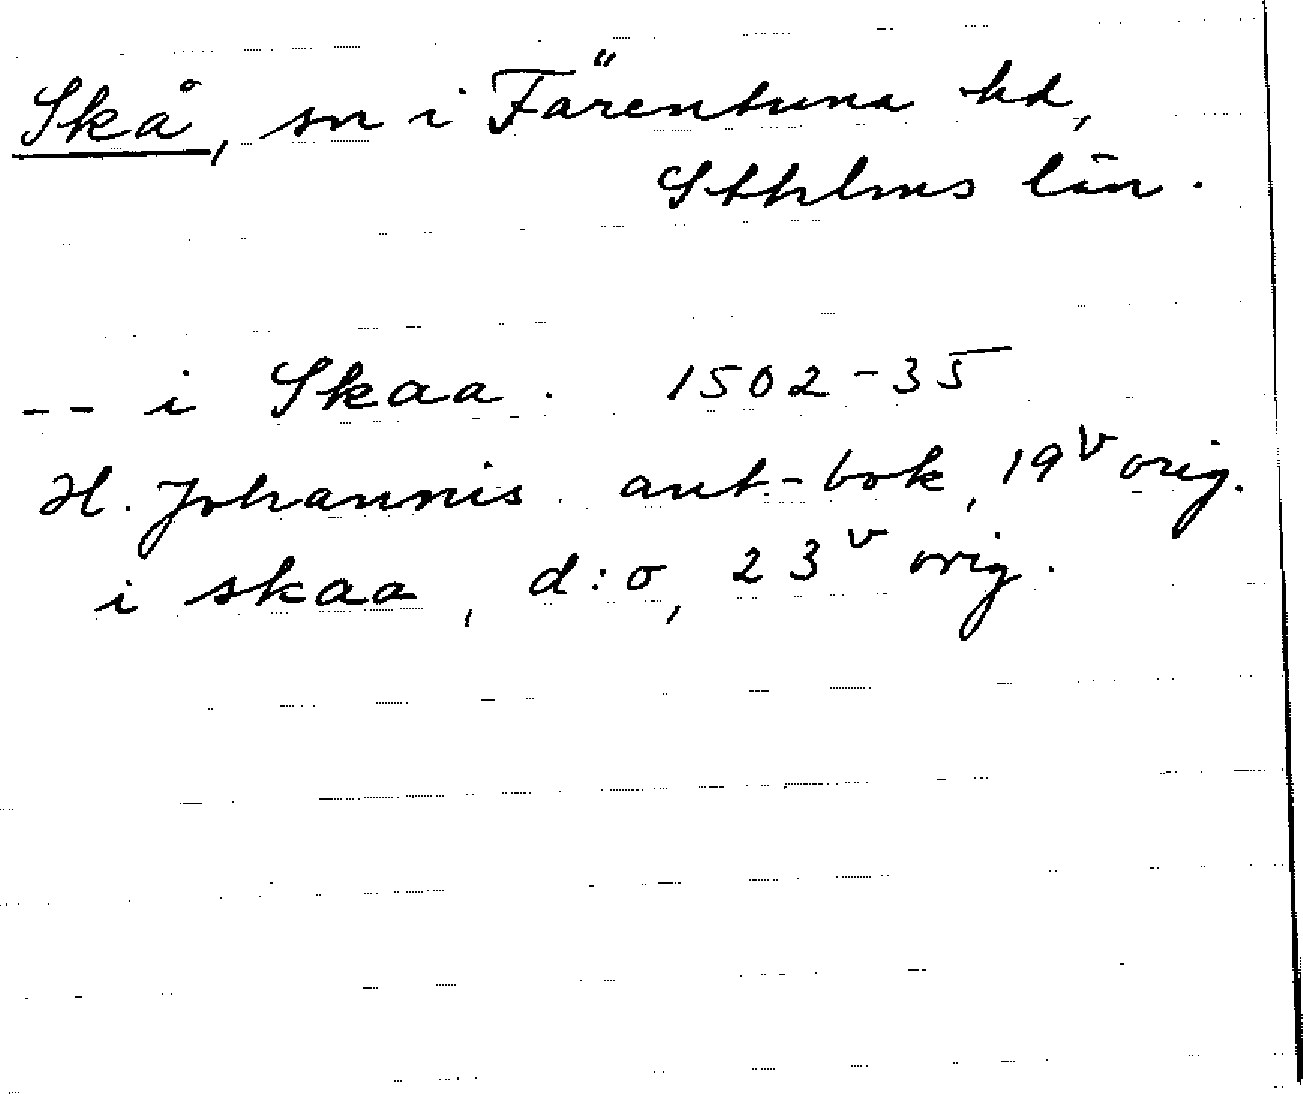 Skå, sn i Färentuna hd,
Sthlms län.
-- i Skaa. 1502-35
H. Johannis ant.-bok, 19v orig.
i skaa, d:o, 23v orig.